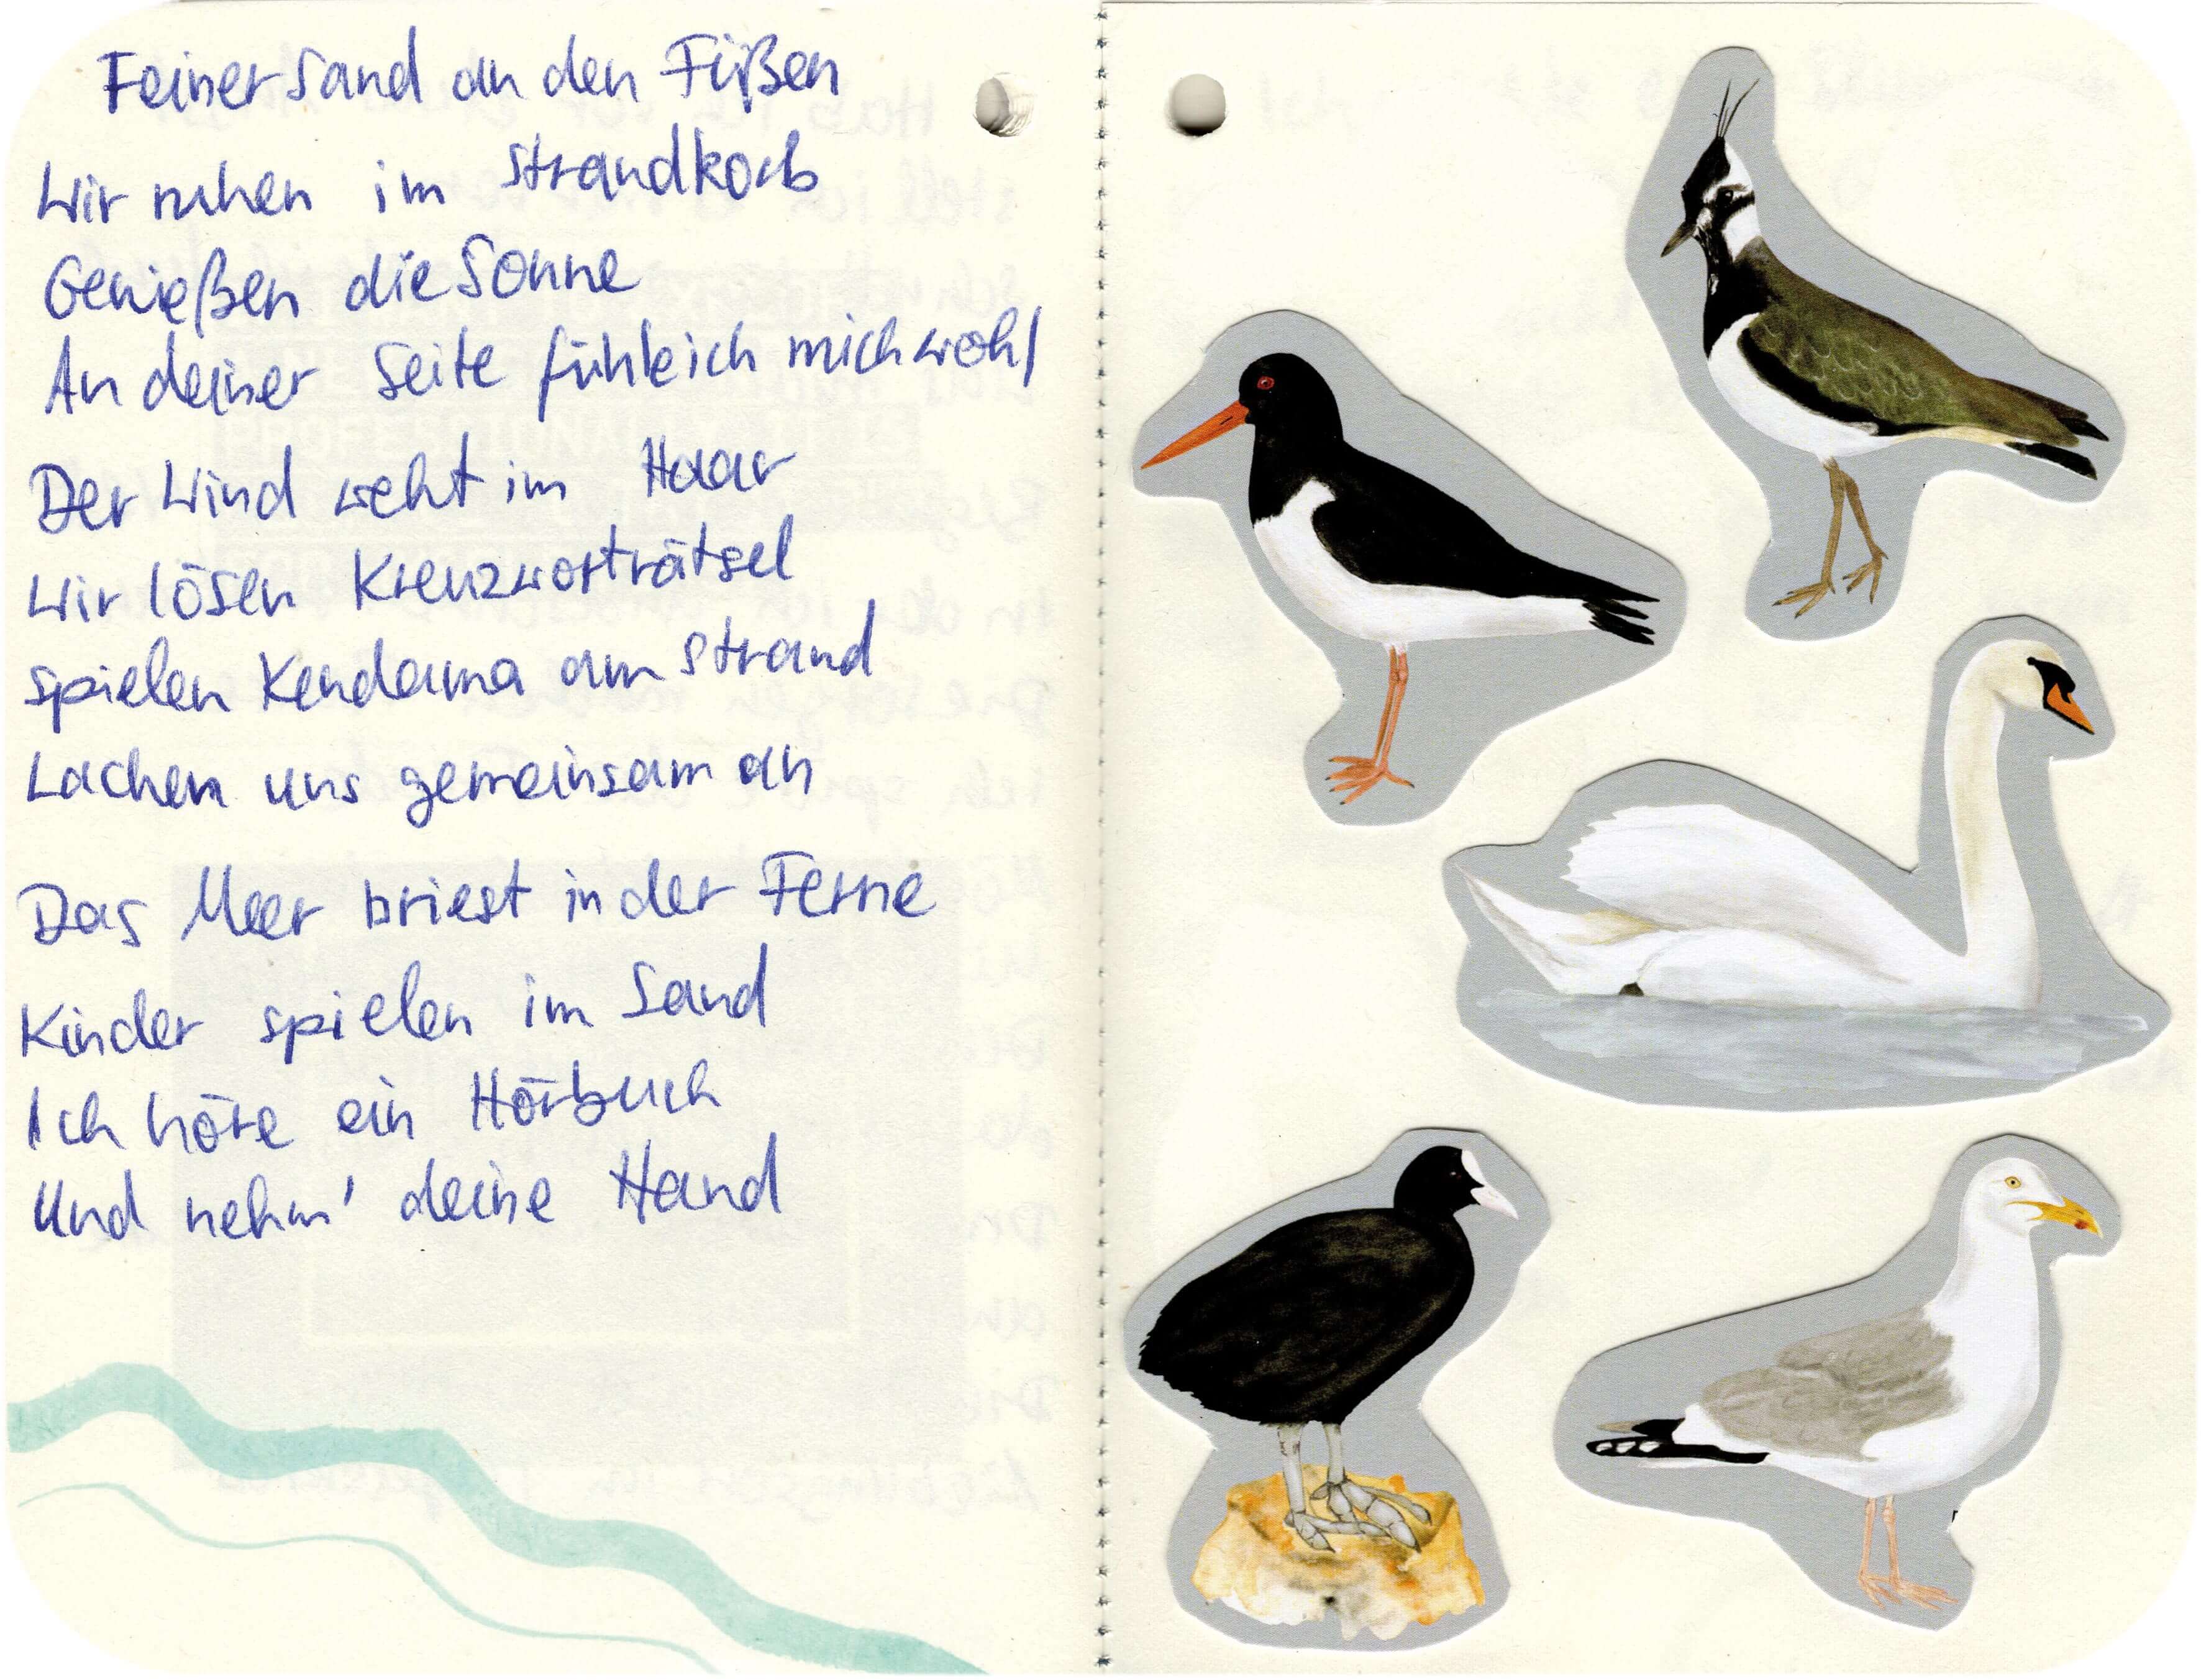 Feiner Sand an den Füßen
Wir ruhen im Strandkorb
Genießen die Sonne
An deiner Seite fühle ich mich wohl
Der Wind weht im Haar
Wir lösen Kreuzworträtsel
spielen Kendama am Strand
Lachen uns gemeinsam an
Das Meer briest in der Ferne
Kinder spielen im Sand
Ich höre ein Hörbuch
Und nehm' deine Hand